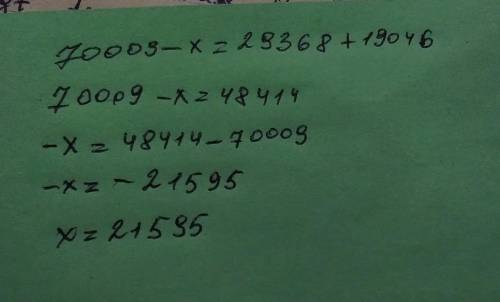 70009-x=29368+19046
70009-x=48414
-x=48414-70009
-x=-21595
x=21595